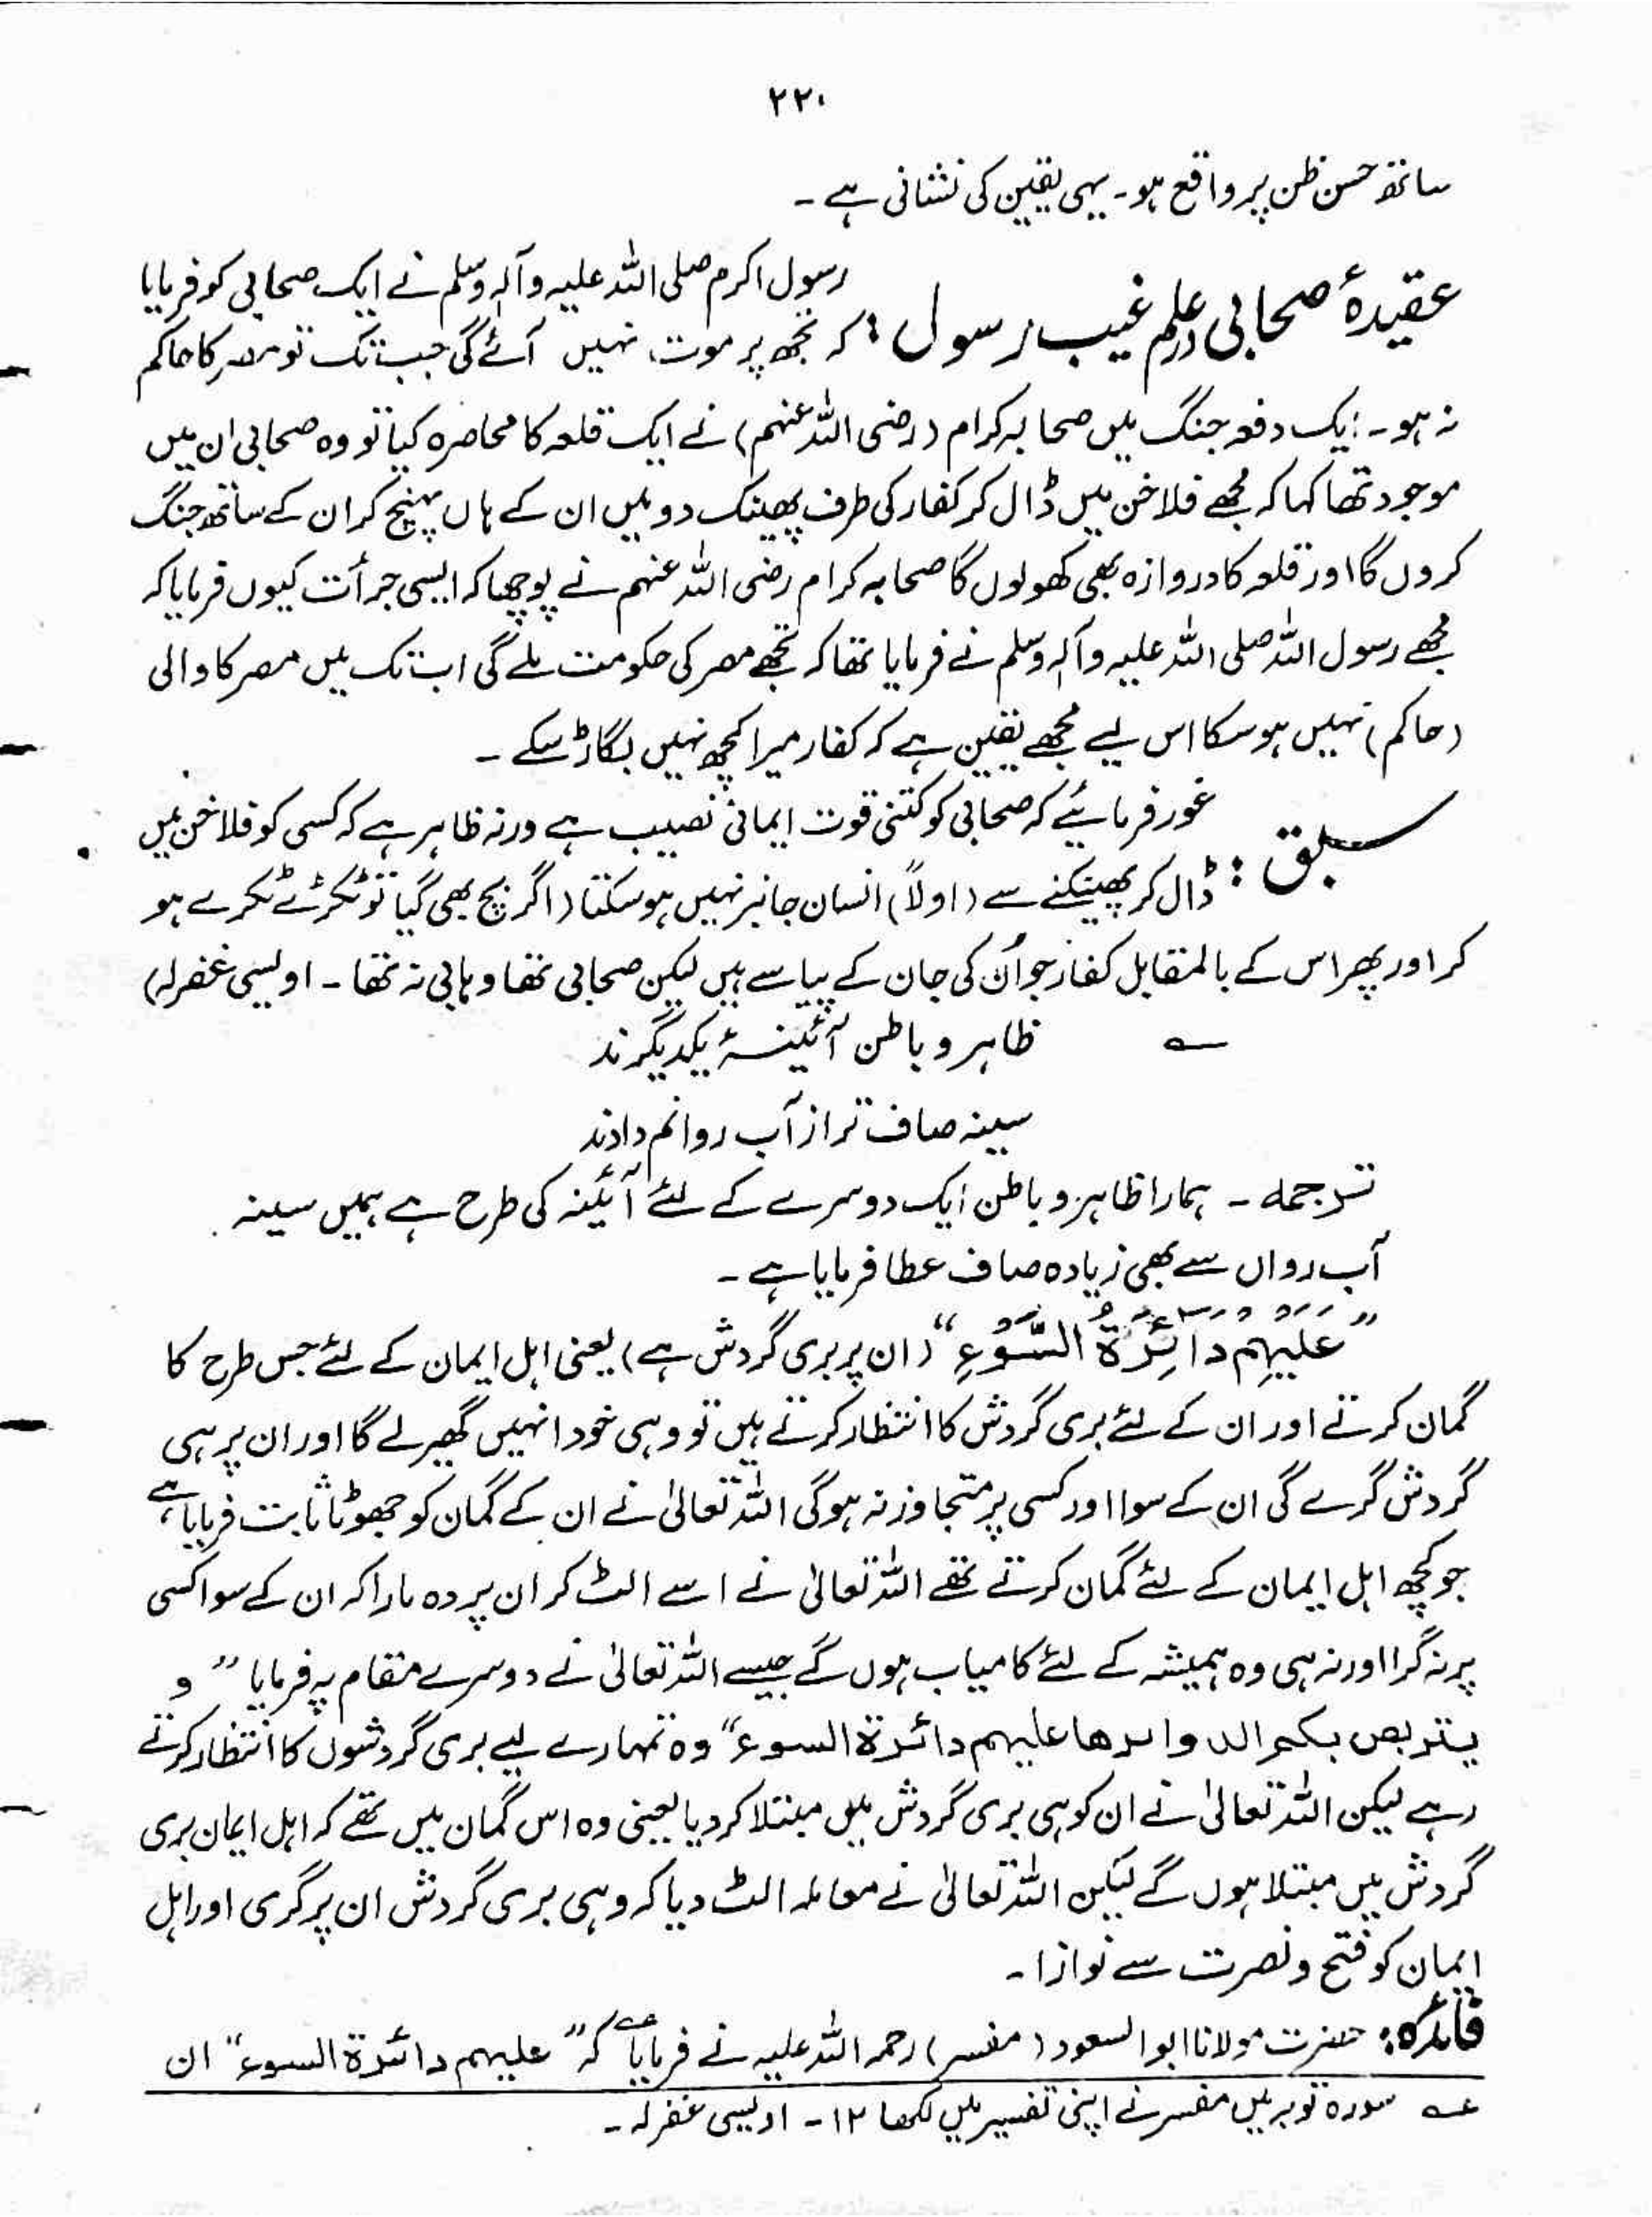 ۲۲۰
ساتھ حسن ظن پر واقع ہو۔ یہی یقین کی نشانی ہے۔
عقیدۂ صحابی در علم غیب رسول : رسول اکرم صلی اللہ علیہ وآلہٖ وسلم نے ایک صحابی کو فرمایا
کہ تجھ پر موت نہیں آئے گی جب تک تو مصر کا حاکم
نہ ہو۔ ایک دفعہ جنگ میں صحابہ کرام (رضی اللہ عنہم) نے ایک قلعہ کا محاصرہ کیا تو وہ صحابی ان میں
موجود تھا کہا کہ مجھے فلاخن میں ڈال کر کفار کی طرف پھینک دو میں ان کے ہاں پہنچ کر ان کے ساتھ جنگ
کروں گا اور قلعہ کا دروازہ بھی کھولوں گا صحابہ کرام رضی اللہ عنہم نے پوچھا کہ ایسی جرأت کیوں فرمایا کہ
مجھے رسول اللہ صلی اللہ علیہ وآلہٖ وسلم نے فرمایا تھا کہ تجھے مصر کی حکومت ملے گی اب تک میں مصر کا والی
(حاکم) نہیں ہو سکا اس لیے مجھے یقین ہے کہ کفار میرا کچھ نہیں بگاڑ سکے۔
سبق : غور فرمائیے کہ صحابی کو کتنی قوت ایمانی نصیب ہے ورنہ ظاہر ہے کہ کسی کو فلاخن میں
ڈال کر پھینکنے سے (اولاً) انسان جانبر نہیں ہو سکتا (اگر بچ بھی گیا تو ٹکڑے ٹکڑے ہو
کر اور پھر اس کے بالمقابل کفار جو اُن کی جان کے پیاسے ہیں لیکن صحابی تھا وہابی نہ تھا۔ اویسی غفرلہ)
؎ ظاہر و باطن آئینۂ یکدیگرند
سینہ صاف تر از آب روانم دادند
ترجمہ۔ ہمارا ظاہر و باطن ایک دوسرے کے لئے آئینہ کی طرح ہے ہمیں سینہ
آب رواں سے بھی زیادہ صاف عطا فرمایا ہے۔
”عَلَيْهِمْ دَآئِرَةُ السَّوْءِ“ (ان پر بری گردش ہے) یعنی اہل ایمان کے لئے جس طرح کا
گمان کرتے اور ان کے لئے بری گردش کا انتظار کرتے ہیں تو وہی خود انہیں گھیر لے گا اور ان پر ہی
گردش گرے گی ان کے سوا اور کسی پر متجاوز نہ ہوگی اللہ تعالیٰ نے ان کے گمان کو جھوٹا ثابت فرمایا ہے،
جو کچھ اہل ایمان کے لئے گمان کرتے تھے اللہ تعالیٰ نے اسے الٹ کر ان پر دہ مارا کہ ان کے سوا کسی
پر نہ گرا اور نہ ہی وہ ہمیشہ کے لئے کامیاب ہوں گے جیسے اللہ تعالیٰ نے دوسرے مقام پہ فرمایا ” و
یتربص بکم الدوائرھا علیہم دائرۃ السوء“ وہ تمہارے لیے بری گردشوں کا انتظار کرتے
رہے لیکن اللہ تعالیٰ نے ان کو ہی بری گردش میں مبتلا کر دیا یعنی وہ اس گمان میں تھے کہ اہل ایمان بری
گردش میں مبتلا ہوں گے لیکن اللہ تعالیٰ نے معاملہ الٹ دیا کہ وہی بری گردش ان پر گری اور اہل
ایمان کو فتح و نصرت سے نوازا۔
فائدہ: حضرت مولانا ابوالسعود (مفسر) رحمہ اللہ علیہ نے فرمایا؎ کہ ”علیہم دائرۃ السوء“ ان
؎ سورہ توبہ میں مفسر نے اپنی تفسیر میں لکھا ۱۲۔ اویسی غفرلہ۔